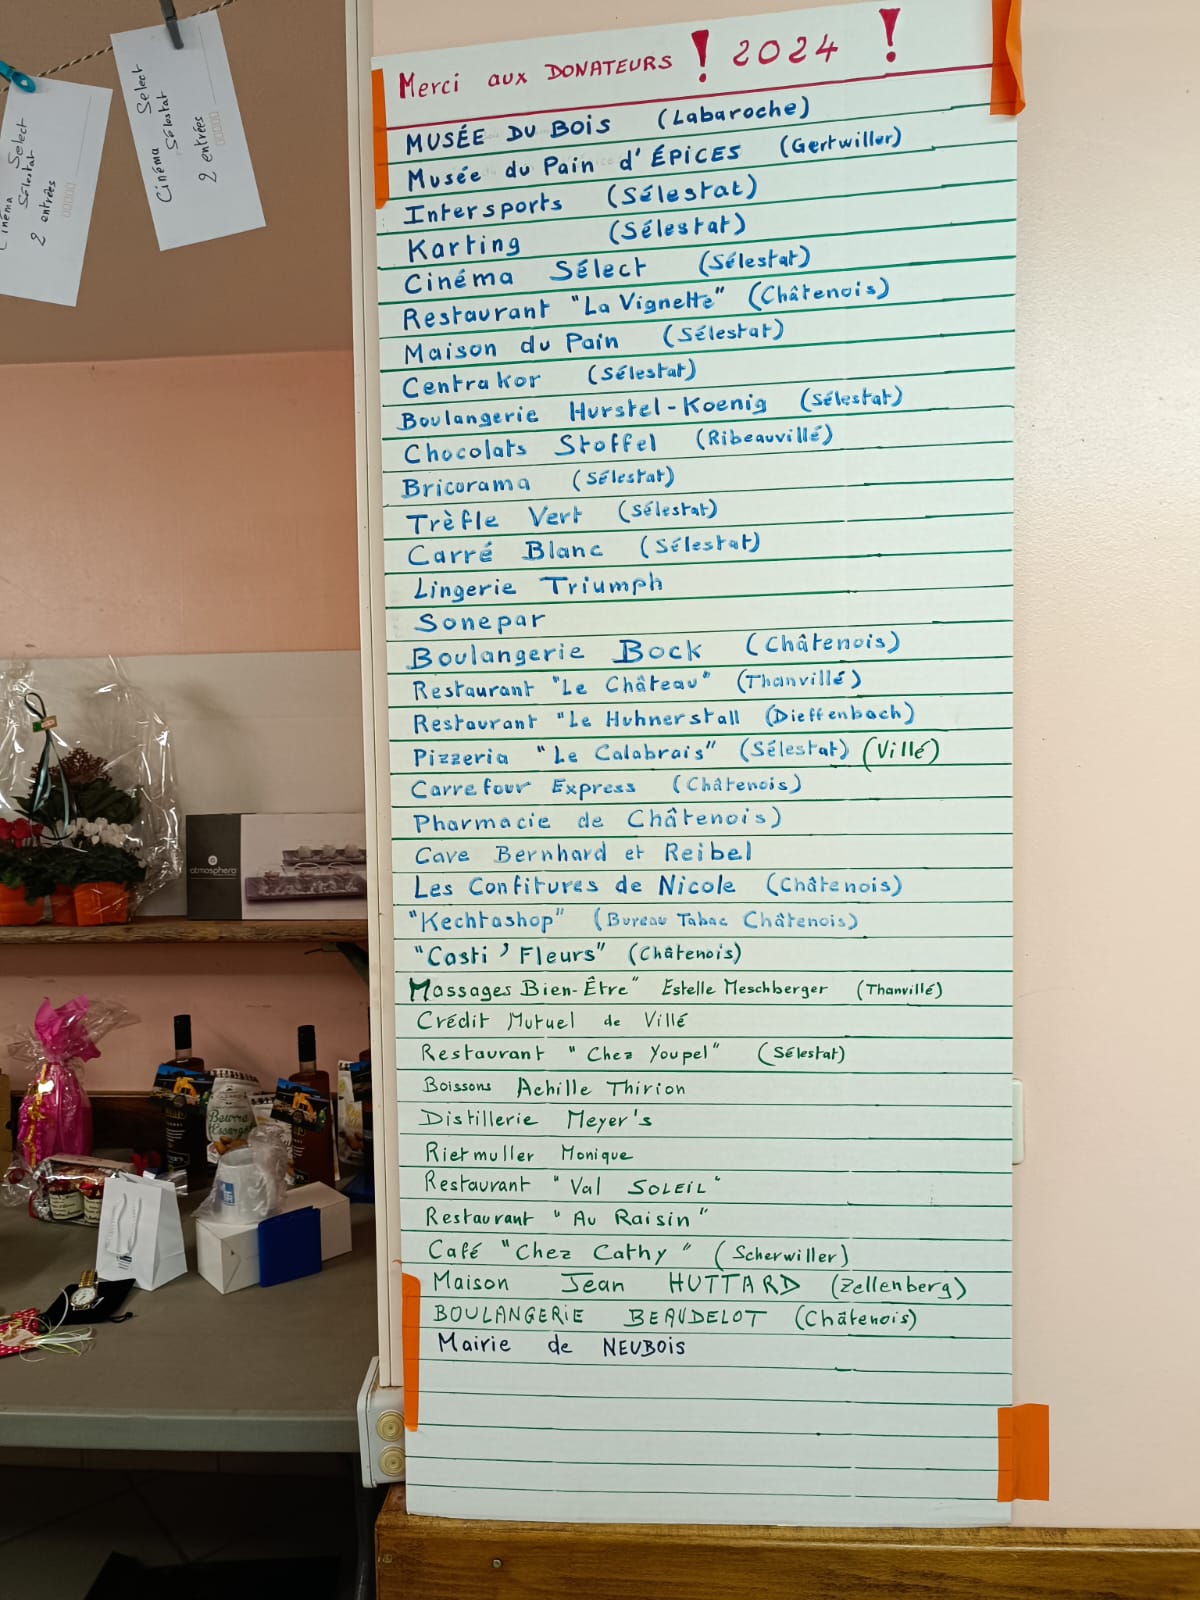 Cinéma Select
Sélestat
2 entrées
Cinéma Select
Sélestat
2 entrées
Merci aux DONATEURS ! 2024 !
MUSÉE DU BOIS (Labaroche)
Musée du Pain d'ÉPICES (Gertwiller)
Intersports (Sélestat)
Karting (Sélestat)
Cinéma Sélect (Sélestat)
Restaurant "La Vignette" (Châtenois)
Maison du Pain (Sélestat)
Centrakor (Sélestat)
Boulangerie Hurstel-Koenig (Sélestat)
Chocolats Stoffel (Ribeauvillé)
Bricorama (Sélestat)
Trèfle Vert (Sélestat)
Carré Blanc (Sélestat)
Lingerie Triumph
Sonepar
Boulangerie Bock (Châtenois)
Restaurant "Le Château" (Thanvillé)
Restaurant "Le Huhnerstall (Dieffenbach)
Pizzeria "Le Calabrais" (Sélestat) (Villé)
Carrefour Express (Châtenois)
Pharmacie de Châtenois)
Cave Bernhard et Reibel
Les Confitures de Nicole (Châtenois)
"Kechtashop" (Bureau Tabac Châtenois)
"Casti'Fleurs" (Châtenois)
Massages Bien-Être" Estelle Meschberger (Thanvillé)
Crédit Mutuel de Villé
Restaurant "Chez Youpel" (Sélestat)
Boissons Achille Thirion
Distillerie Meyer's
Rietmuller Monique
Restaurant "Val SOLEIL"
Restaurant "Au Raisin"
Café "Chez Cathy" (Scherwiller)
Maison Jean HUTTARD (Zellenberg)
BOULANGERIE BEAUDELOT (Châtenois)
Mairie de NEUBOIS
atmosphera
Beurre